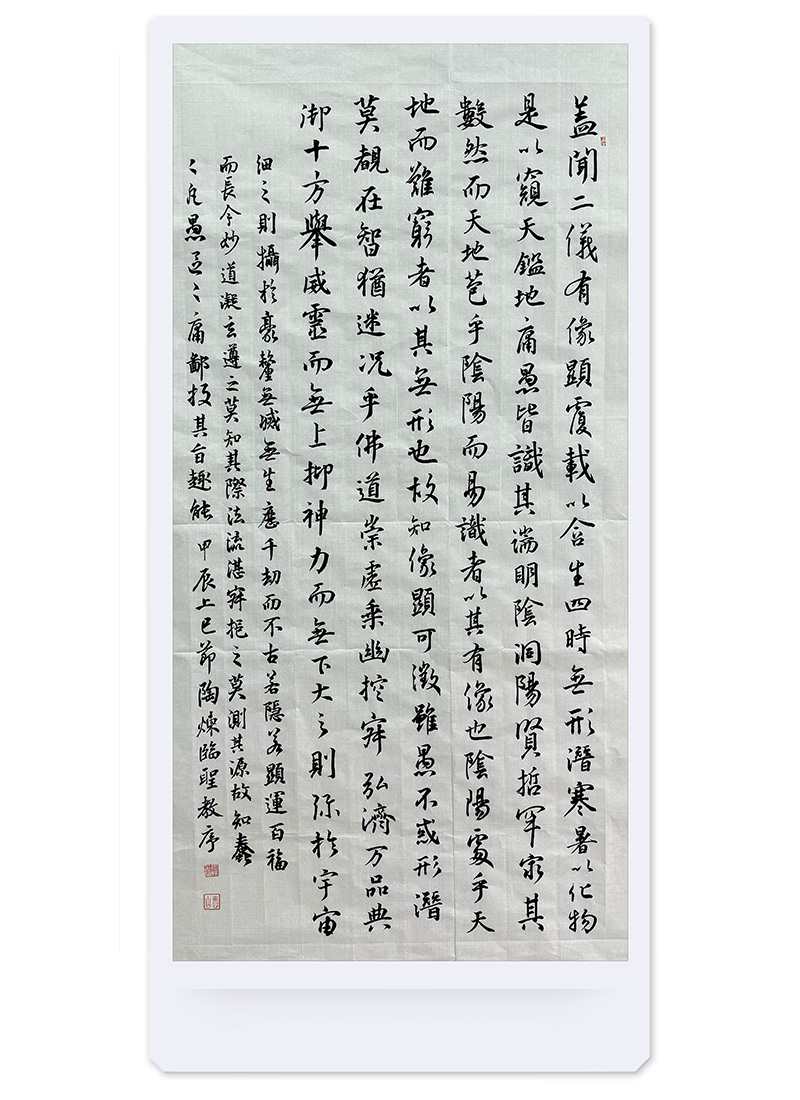 蓋聞二儀有像顯覆載以含生四時無形潛寒暑以化物
是以窺天鑑地庸愚皆識其端明陰洞陽賢哲罕窮其
數然而天地苞乎陰陽而易識者以其有像也陰陽處乎天
地而難窮者以其無形也故知像顯可徵雖愚不惑形潛
莫覩在智猶迷况乎佛道崇虛乘幽控寂弘濟万品典
御十方舉威靈而無上抑神力而無下大之則弥於宇宙
細之則攝於豪釐無滅無生歷千劫而不古若隱若顯運百福
而長今妙道凝玄遵之莫知其際法流湛寂挹之莫測其源故知蠢
〻凡愚區〻庸鄙投其旨趣能 甲辰上巳節陶煉臨聖教序